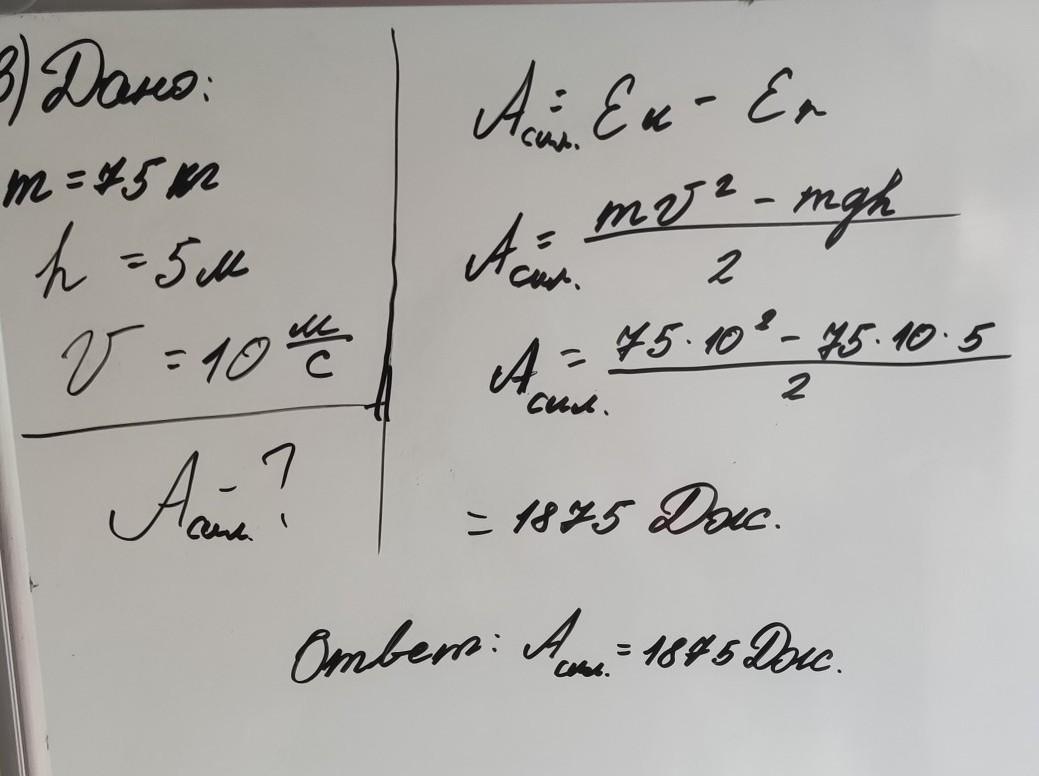 в) Дано:
m = 75 кг
h = 5 м
v = 10 м/с
A сил. - ?
A сил. = Eк - Eп
A сил. = mv² - mgh / 2
A сил. = 75·10² - 75·10·5 / 2
= 1875 Дж.
Ответ: A сил. = 1875 Дж.